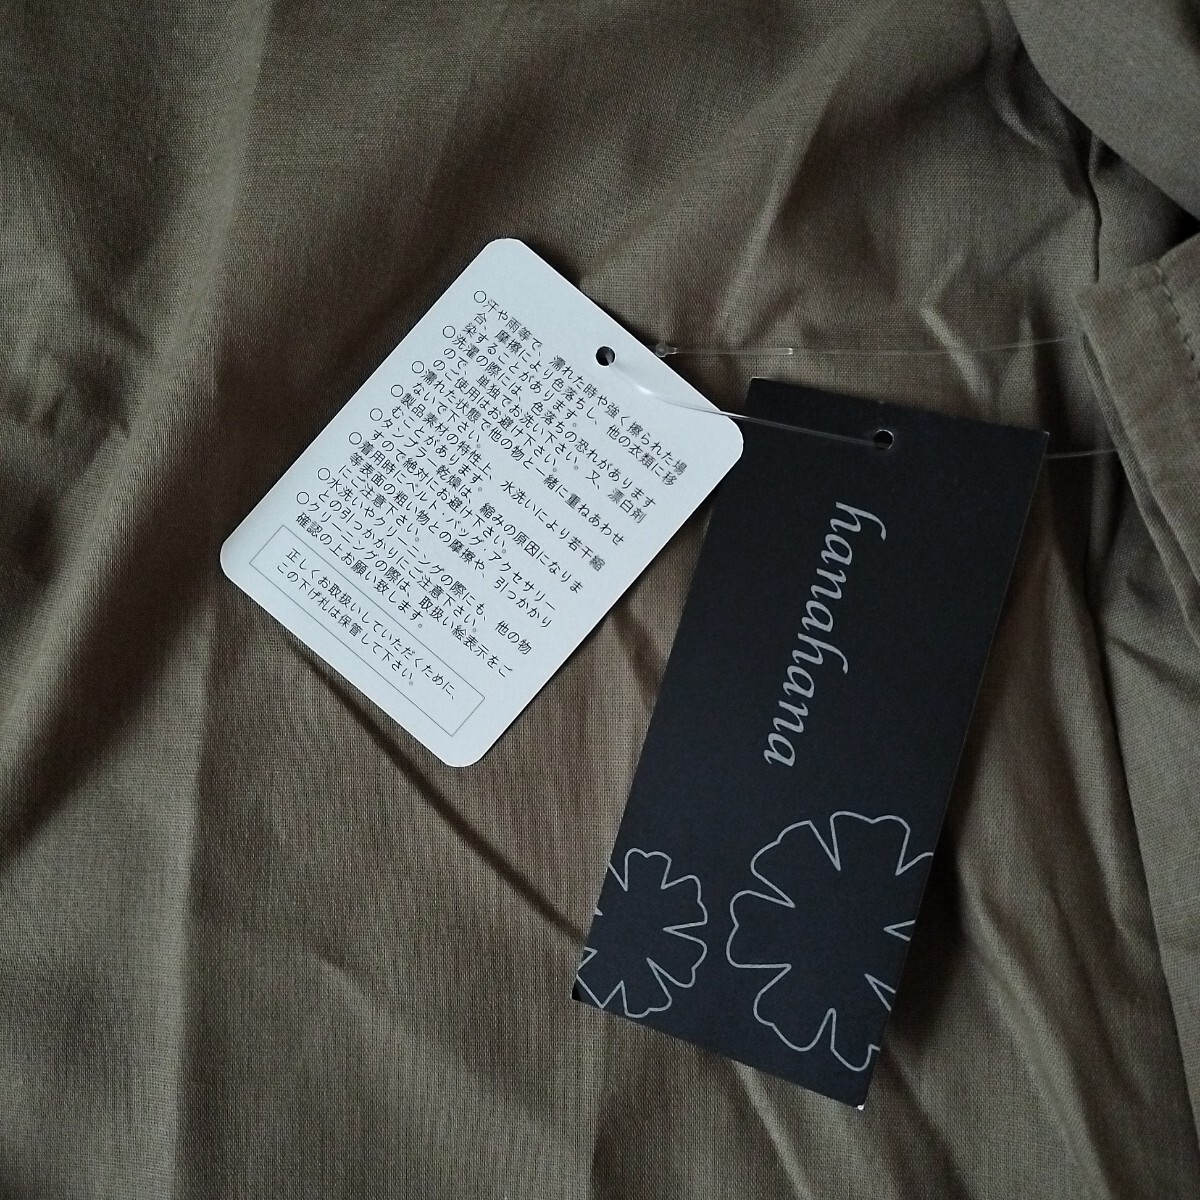 ○汗や雨等で、濡れた時や強く擦られた場
合、摩擦により色落ちし、他の衣類に移
染することがあります。
○洗濯の際には、色落ちの恐れがあります
ので、単独でお洗い下さい。又、漂白剤
のご使用はお避け下さい。
○濡れた状態で他の物と一緒に重ねあわせ
ないで下さい。
○製品素材の特性上、水洗いにより若干縮
むことがあります。
○タンブラー乾燥は、縮みの原因になりま
すので絶対にお避け下さい。
○着用時にベルト・バッグ・アクセサリー
等表面の粗い物との摩擦や、引っかかり
にご注意下さい。
○水洗いやクリーニングの際にも、他の物
との引っかかりにご注意下さい。
○クリーニングの際は、取扱い絵表示をご
確認の上お願い致します。
正しくお取扱いしていただくために、
この下げ札は保管して下さい。
hanahana